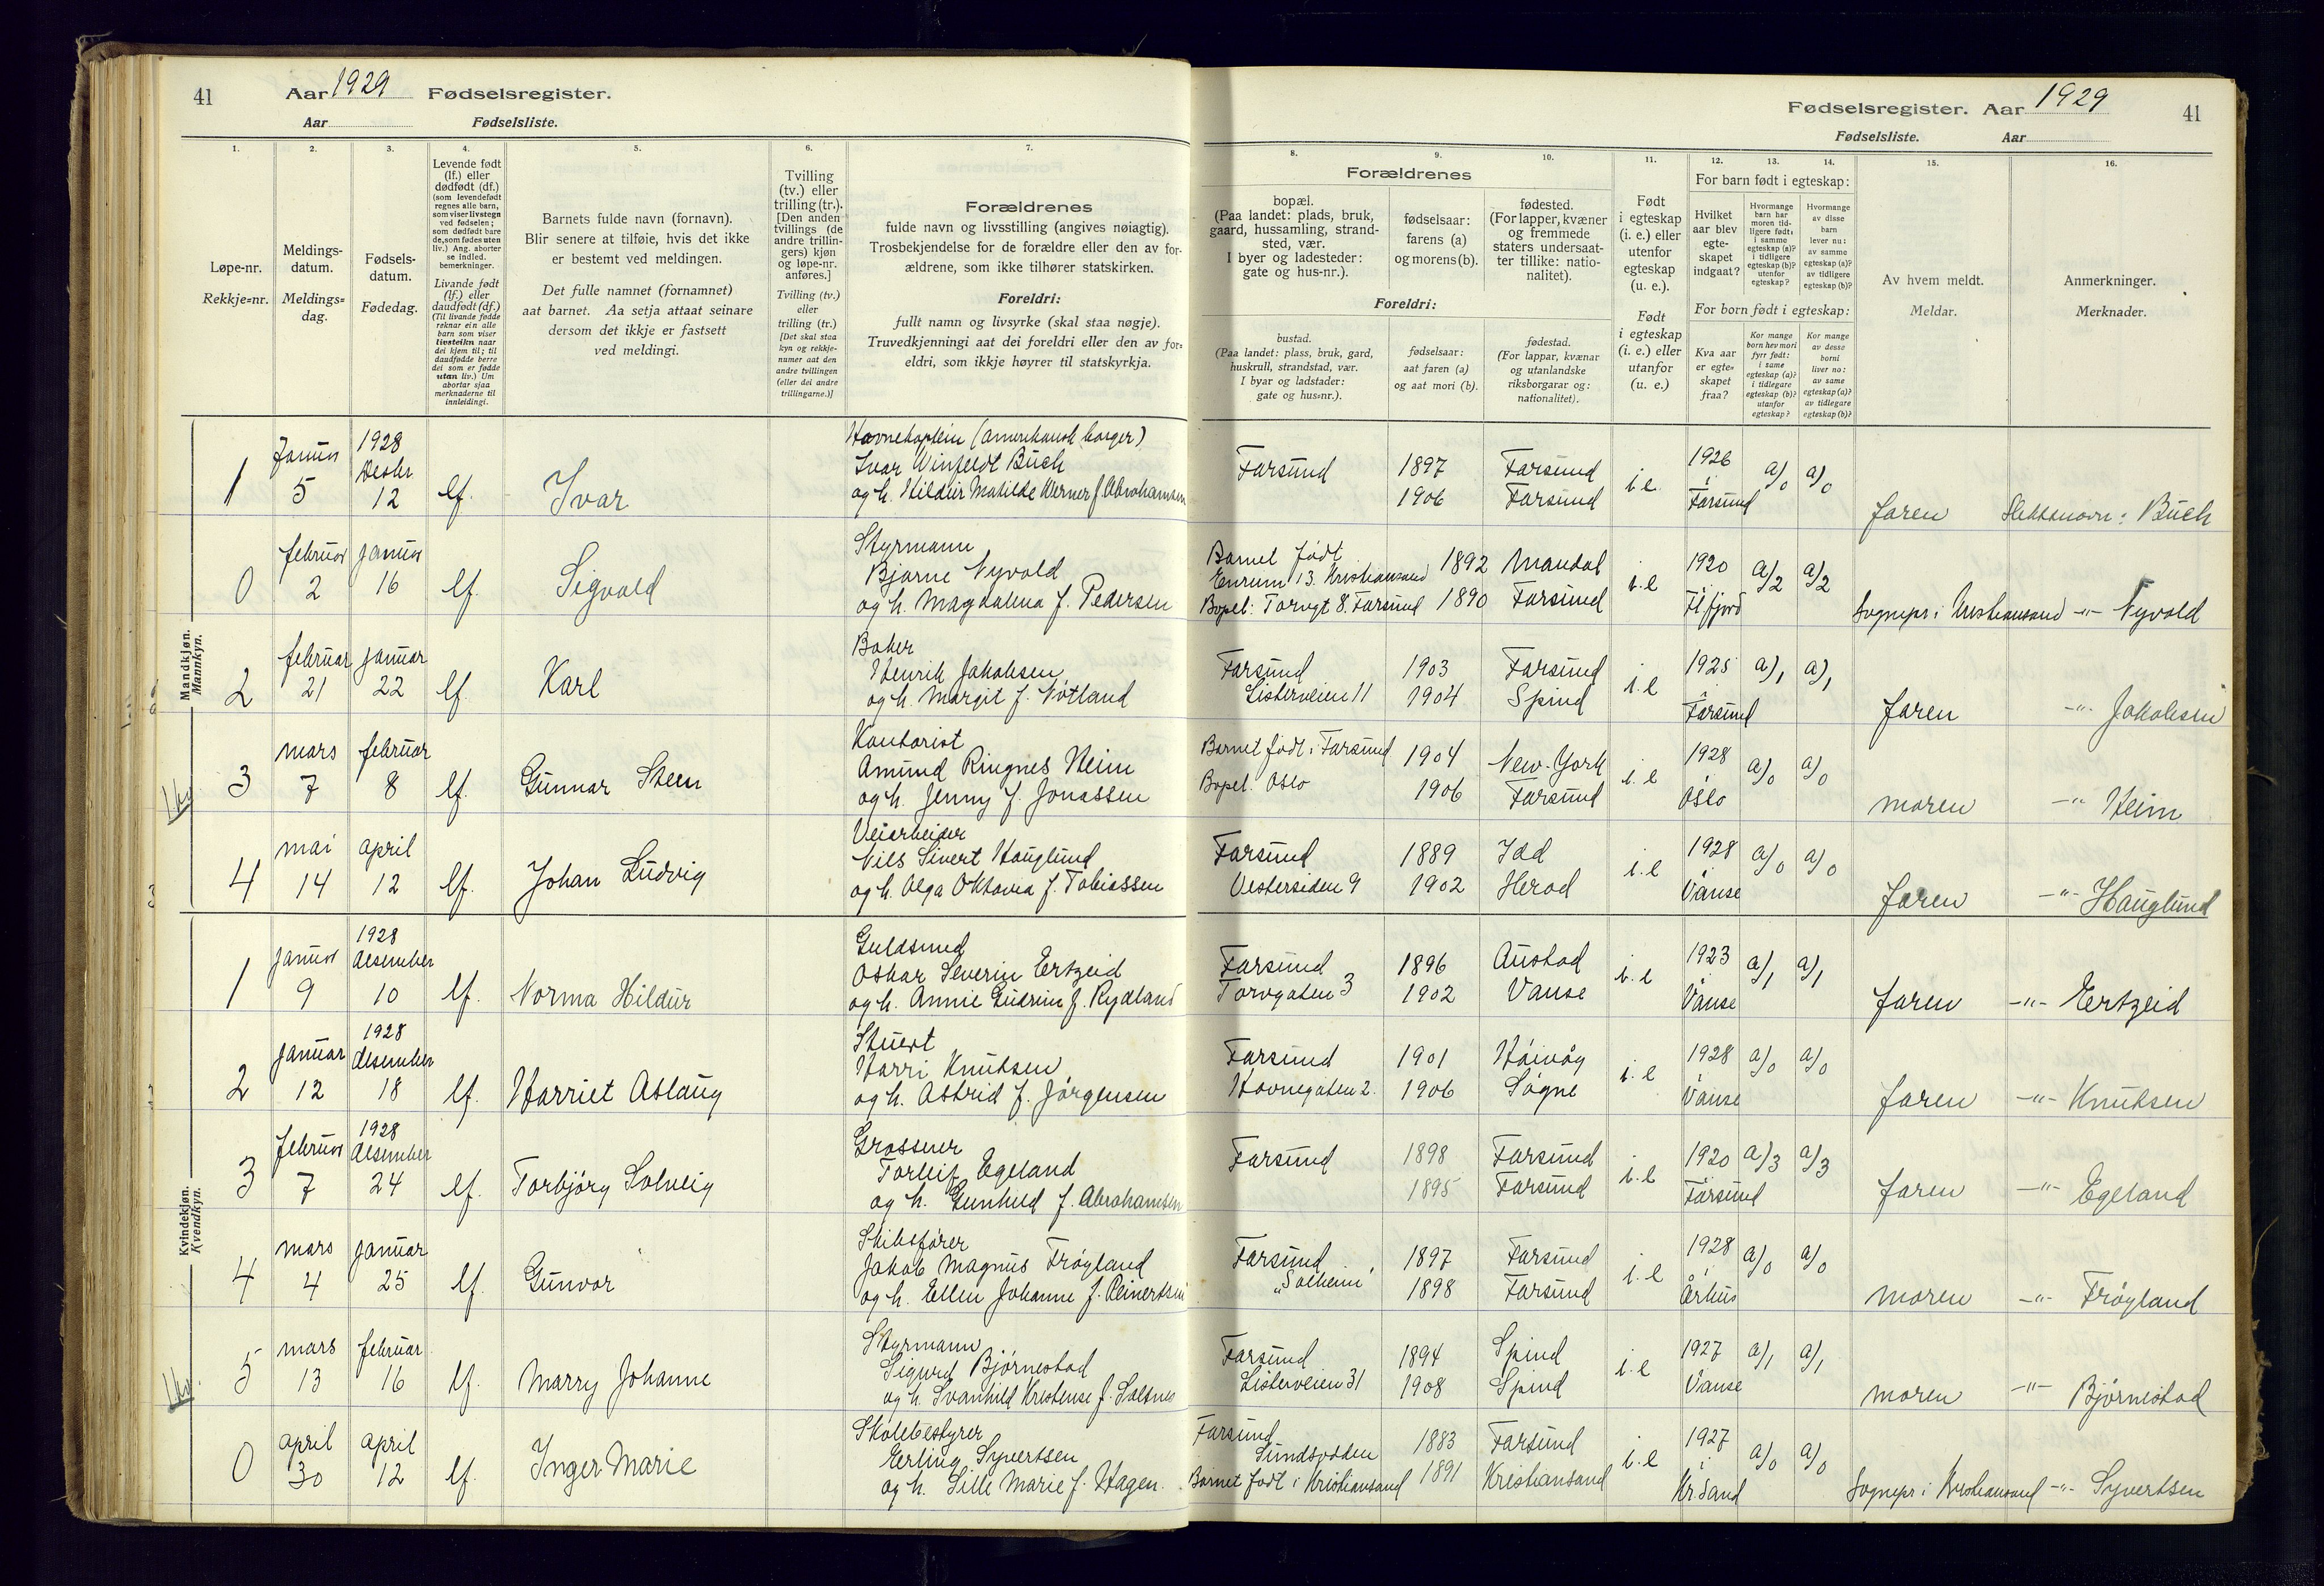 41 Aar 1929 Fødselsregister.
Aar Fødselsliste.
1. 2. 3. 4. 5. 6. 7.
Løpe-nr.
Rekkje=nr.
Meldings-
datum.
Meldings=
dag.
Fødsels-
datum.
Fødedag.
Levende født
(lf.) eller
dødfødt (df.)
(som levendefødt
regnes alle barn,
som viser livstegn
ved fødselen;
som dødfødt bare
de, som fødes uten
liv.) Ang. aborter
se indled.
bemerkninger.
Livande født
(lf.) eller
daudfødt (df.)
(Til livande fødde
reknar ein alle
barn som viser
livsteikn naar
dei kjem til; til
daudfødde berre
dei som er fødde
utan liv.) Um
abortar sjaa
merknaderne til
innleidingi.
Barnets fulde navn (fornavn).
Blir senere at tilføie, hvis det ikke
er bestemt ved meldingen.
Det fulle namnet (fornamnet)
aat barnet. Aa setja attaat seinare
dersom det ikkje er fastsett
ved meldingi.
Tvilling
(tv.) eller
trilling (tr.).
[Den anden
tvillings (de
andre trillin-
gers) kjøn
og løpe-nr.
anføres.]
Tvilling (tv.)
eller
trilling (tr.)
[Det skal staa
kyn og rekkje-
numer aat den
andre tvillingen
(eller dei andre
trillingarne.)]
Forældrenes
fulde navn og livsstilling (angives nøiagtig).
Trosbekjendelse for de forældre eller den av for-
ældrene, som ikke tilhører statskirken.
Foreldri:
fullt namn og livsyrke (skal staa nøgje).
Truvedkjenningi aat dei foreldri eller den av for=
eldri, som ikkje høyrer til statskyrkja.
Fødselsregister. Aar 1929 41
Fødselsliste. Aar
8. 9. 10. 11. 12. 13. 14. 15. 16.
Forældrenes
bopæl.
(Paa landet: plads, bruk,
gaard, hussamling, strand-
sted, vær.
I byer og ladesteder:
gate og hus-nr.).
fødselsaar:
farens (a)
og morens (b).
fødested.
(For lapper, kvæner
og fremmede
staters undersaat-
ter tillike: natio-
nalitet).
Foreldri:
bustad.
(Paa landet: plass, bruk, gard,
huskrull, strandstad, vær.
I byar og ladstader:
gate og hus=nr.).
fødselsaar:
aat faren (a)
og aat mori (b).
fødestad.
(For lappar, kvænar
og utanlandske
riksborgarar og:
nationalitet).
Født
i egteskap
(i. e.) eller
utenfor
egteskap
(u. e.).
Født
i egteskap
(i. e.) eller
utanfor
(u. e.)
For barn født i egteskap:
Hvilket
aar blev
egte-
skapet
indgaat?
Hvormange
barn har
moren tid-
ligere født:
i samme
egteskap (a)?
i tidligere
egteskap (b)?
utenfor
egteskap?
Hvormange
av disse
barn
lever nu:
av samme
egteskap (a)?
av tidligere
egteskap (b)?
For born født i egteskap:
Kva aar
er egte=
skapet
fraa?
Kor mange
born hev mori
fyrr født:
i same
egteskap (a)?
i tidlegare
egteskap (b)?
utanfor
egteskap?
Kor mange
av desse
borni
liver no:
av same
egteskap (a)?
av tidlegare
egteskap (b)?
Av hvem meldt.
Meldar.
Anmerkninger.
Merknader.
Mandkjøn.
Mannkyn.
1 Januar 5 1928 Desbr 12 lf. Ivar
Havnekaptein (amerikansk borger)
Ivar Winfeldt Buch
og h. Hildur Matilde Werner f. Abrahamsen
Farsund 1897 Farsund i.e. 1926 a/0 a/0
1906 Farsund i Farsund
faren Slektsnavn: Buch
0 februar 2 januar 16 lf. Sigvald
Styrmann
Bjarne Nyvold
og h. Magdalena f. Pedersen
Barnet født
Enrum 13. Kristiansand 1892 Mandal i.e 1920 a/2 a/2
Bopel: Torvgt 8. Farsund 1890 Farsund
Sognepr i Kristiansand -"- Nyvold
2 februar 21 januar 22 lf. Karl
Baker
Henrik Jakobsen
og h. Margit f. Nötland
Farsund 1903 Farsund i.e 1925 a/1 a/1
Listerveien 11 1904 Spind i Farsund
faren -"- Jakobsen
3 mars 7 februar 8 lf. Gunnar Steen
Kontorist
Amund Ringnes Heim
og h. Jenny f. Jonassen
Barnet født i Farsund 1904 New-York i.e 1928 a/0 a/0
Bopel. Oslo 1906 Farsund i Oslo
moren -"- Heim
4 mai 14 april 12 lf. Johan Ludvig
Veiarbeider
Nils Sivert Hauglund
og h. Olga Oktavia f. Tobiassen
Farsund 1889 Idd i.e 1928 a/0 a/0
Vestersiden 9 1902 Herad i Vanse
faren -"- Hauglund
Kvindekjøn.
Kvendkyn.
1 januar 9 1928 desember 10 lf. Norma Hildur
Guldsmed
Oskar Severin Ertzeid
og h. Annie Gudrun f. Rydland
Farsund 1896 Austad i.e 1923 a/1 a/1
Torvgaten 3 1902 Vanse i Vanse
faren -"- Ertzeid
2 januar 12 1928 desember 18 lf. Harriet Aslaug
Stuert
Harri Knutsen
og h. Astrid f. Jörgensen
Farsund 1901 Höivåg i.e 1928 a/0 a/0
Havnegaten 2. 1906 Sögne i Vanse
faren -"- Knutsen
3 februar 7 1928 desember 24 lf. Torbjörg Solveig
Grosserer
Torleif Egeland
og h. Gunhild f. Abrahamsen
Farsund 1898 Farsund i.e 1920 a/3 a/3
1895 Farsund i Farsund
faren -"- Egeland
4 mars 4 januar 25 lf. Gunvor
Skibsfører
Jakob Magnus Fröyland
og h. Ellen Johanne f. Reinertsen
Farsund 1897 Farsund i.e 1928 a/0 a/0
"Solheim" 1898 Farsund i Århus
moren -"- Fröyland
5 mars 13 februar 16 lf. Marry Johanne
Styrmann
Sigurd Björnestad
og h. Svanhild Kristense f. Saltnes
Farsund 1894 Spind i.e 1927 a/1 a/1
Listerveien 31 1908 Spind i Vanse
moren -"- Björnestad
0 april 30 april 12 lf. Inger Marie
Skolebestyrer
Erling Syvertsen
og h. Lille Marie f. Hagen.
Farsund
Sundsodden 1883 Farsund i.e 1927 a/0 a/0
Barnet født i Kristiansand 1891 Kristiansand i Kr.Sand
Sognepr i Kristiansand -"- Syvertsen